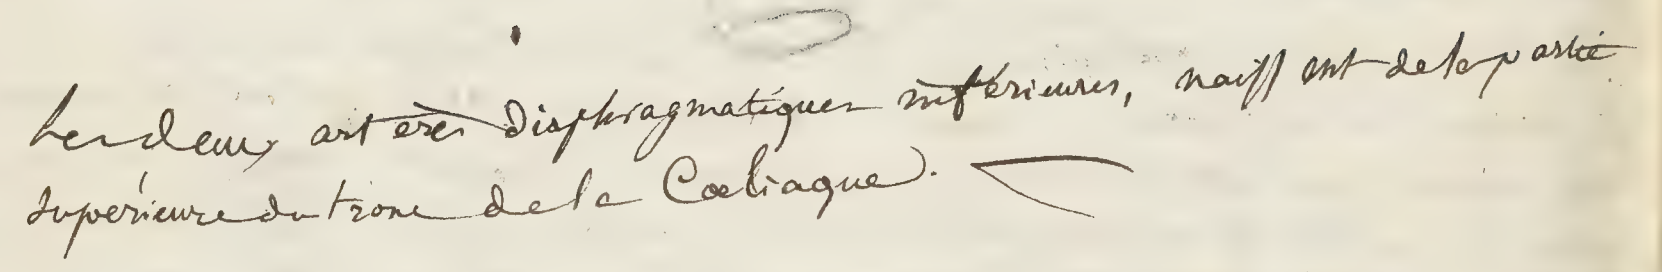 Les deux artères diaphragmatiques inférieures, naissent de la partie
supérieure du tronc de la Cœliaque.